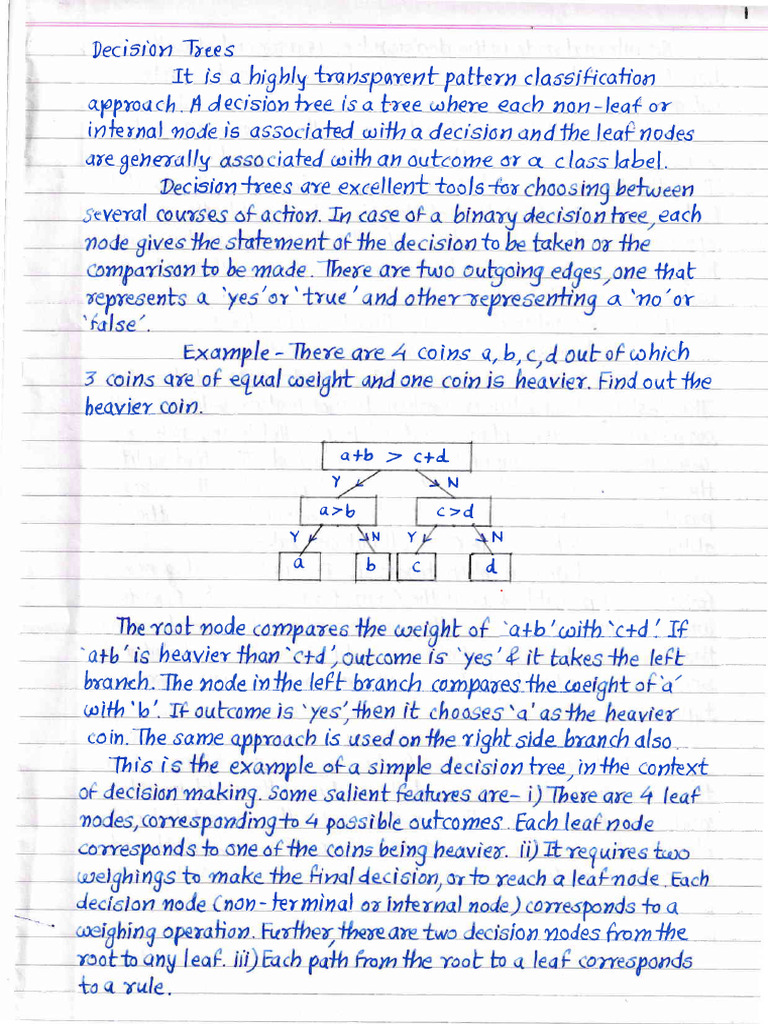 1
Decision Trees
It is a highly transparent pattern classification
approach. A decision tree is a tree where each non-leaf or
internal node is associated with a decision and the leaf nodes
are generally associated with an outcome or a class label.
Decision trees are excellent tools for choosing between
several courses of action. In case of a binary decision tree, each
node gives the statement of the decision to be taken or the
comparison to be made. There are two outgoing edges, one that
represents a 'yes' or 'true' and other representing a 'no' or
'false'.
Example - There are 4 coins a, b, c, d out of which
3 coins are of equal weight and one coin is heavier. Find out the
heavier coin.
a+b > c+d
Y N
a>b c>d
Y N Y N
a b c d
The root node compares the weight of 'a+b' with 'c+d'. If
'a+b' is heavier than 'c+d', outcome is 'yes' & it takes the left
branch. The node in the left branch compares the weight of 'a'
with 'b'. If outcome is 'yes', then it chooses 'a' as the heavier
coin. The same approach is used on the right side branch also.
This is the example of a simple decision tree, in the context
of decision making. Some salient features are- i) There are 4 leaf
nodes, corresponding to 4 possible outcomes. Each leaf node
corresponds to one of the coins being heavier. ii) It requires two
weighings to make the final decision, or to reach a leaf node. Each
decision node (non-terminal or internal node) corresponds to a
weighing operation. Further, there are two decision nodes from the
root to any leaf. iii) Each path from the root to a leaf corresponds
to a rule.